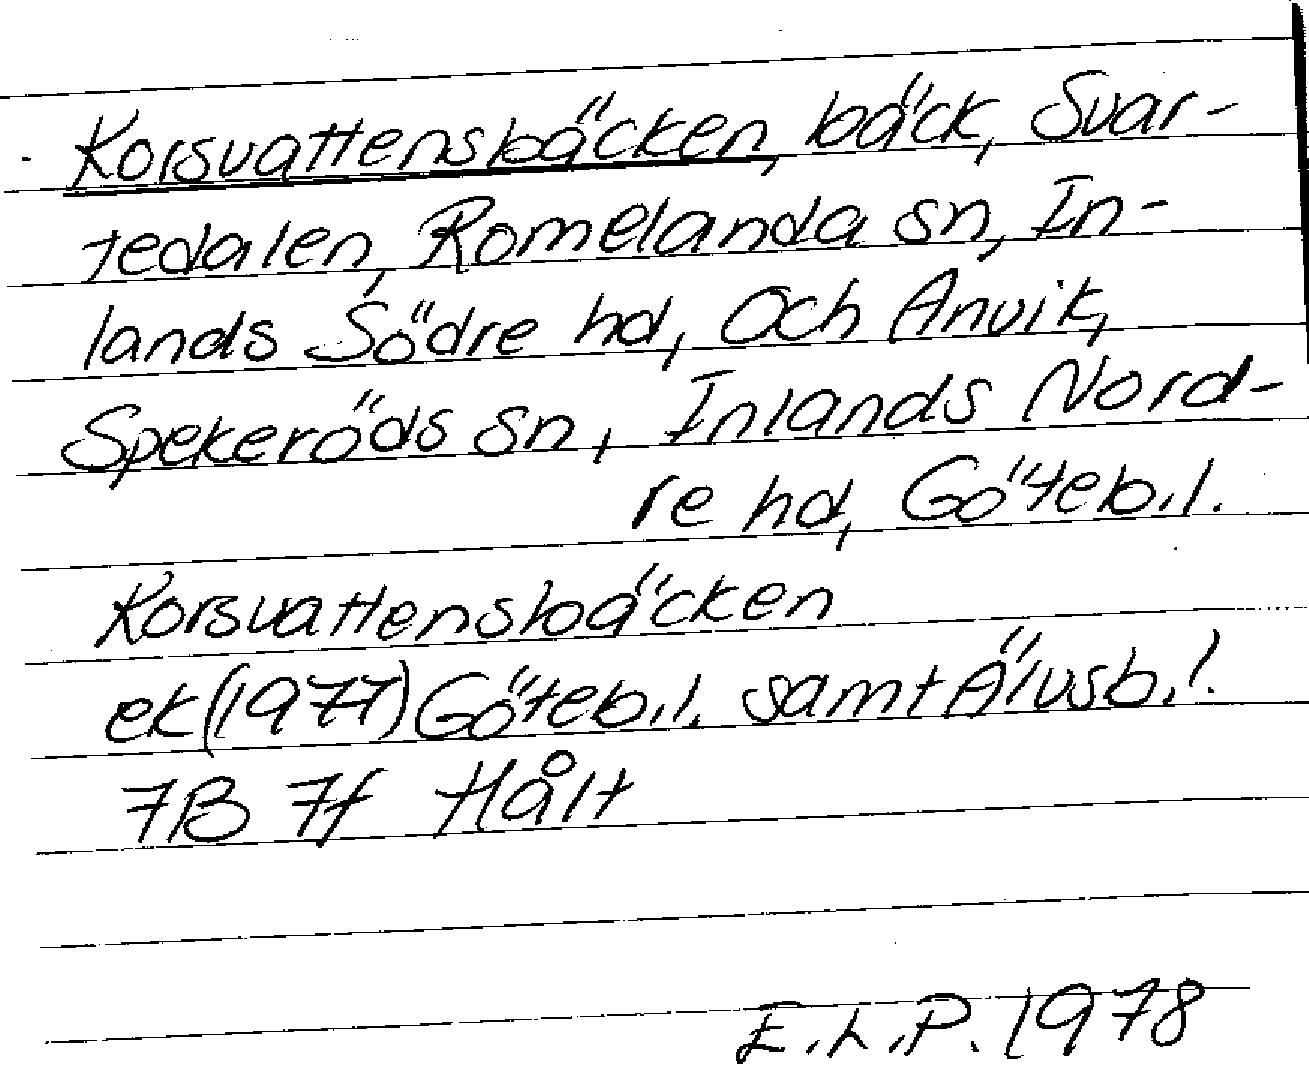 Korsvattensbäcken, bäck, Svar-
tedalen, Romelanda sn, In-
lands Södre hd, och Anvik,
Spekeröds sn, Inlands Nord-
re hd, Göteb.l.
Korsvattensbäcken
ek(1977) Göteb.l. samt Älvsb.l.
7B 7f Hålt
E.L.P. 1978